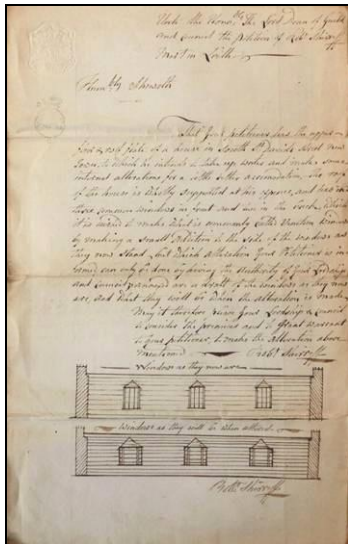 Unto the Honor^ble The Lord Dean of Guild
and Council the petition of Rob^t Shirreff
Mer^t in Leith
Humbly Sheweth
That Your petitioner has the upper
a house in South S^t Davids Street New
Town, to which he intends to make some
internal alterations for a little better accomodation. The roof
of the house is
three windows in front and in the back, which
it is meant to make what is commonly called Windows
by making a Small addition to the side of the windows as
they now Stand, but which alteration Your Petitioner is in-
formed can only be done by having the Authority of Your Lordship
and Council annexed are a draft of the windows as they now
are, and what they will be when the alteration is made
May it therefore please Your Lordship & Council
to consider the premises and to Grant warrant
to Your petitioner, to make the alteration above
mentioned Rob^t Shirreff
Windows as they now are
Windows as they will be when altered
Rob^t Shirreff